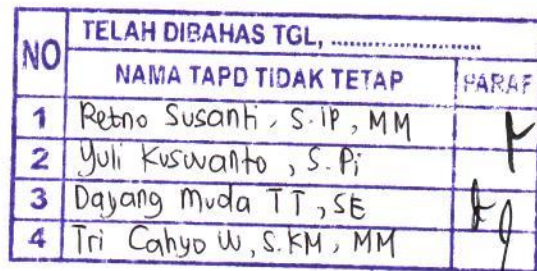 NO TELAH DIBAHAS TGL, ........................
NAMA TAPD TIDAK TETAP PARAF
1 Retno Susanti, S.IP, MM
2 Yuli Kuswanto, S.Pi
3 Dayang Muda TT, SE
4 Tri Cahyo W, S.KM, MM